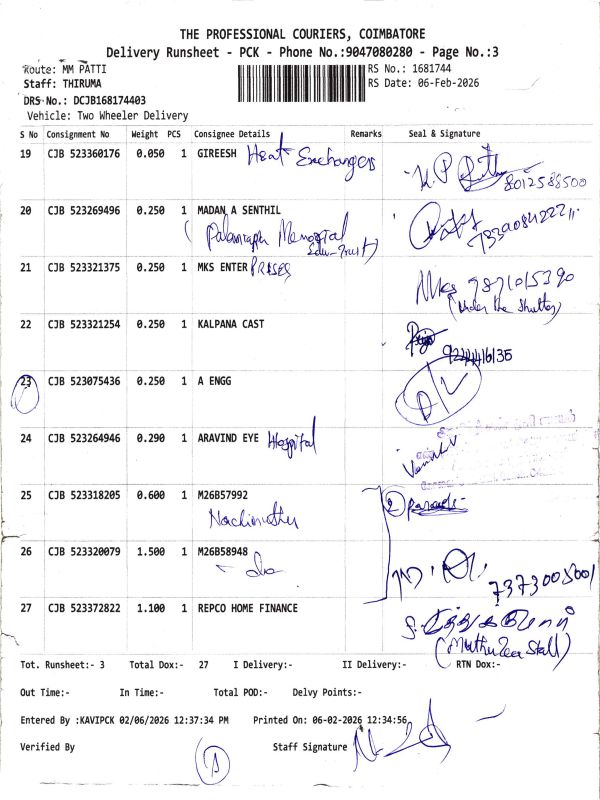 THE PROFESSIONAL COURIERS, COIMBATORE
Delivery Runsheet - PCK - Phone No.:9047080280 - Page No.:3
Route: MM PATTI
RS No.: 1681744
Staff: THIRUMA
RS Date: 06-Feb-2026
DRS No.: DCJB168174403
Vehicle: Two Wheeler Delivery
S No Consignment No Weight PCS Consignee Details Remarks Seal & Signature
19 CJB 523360176 0.050 1 GIREESH Heat Exchangers
8012588500
20 CJB 523269496 0.250 1 MADAN A SENTHIL
Memorial
21 CJB 523321375 0.250 1 MKS ENTERPRISES
MKS 9871015390
(under the shutter)
22 CJB 523321254 0.250 1 KALPANA CAST
23 CJB 523075436 0.250 1 A ENGG
D/L
24 CJB 523264946 0.290 1 ARAVIND EYE Hospital
25 CJB 523318205 0.600 1 M26B57992
Nachimuthu
26 CJB 523320079 1.500 1 M26B58948
7373005001
27 CJB 523372822 1.100 1 REPCO HOME FINANCE
Tot. Runsheet:- 3 Total Dox:- 27 I Delivery:- II Delivery:- RTN Dox:-
Out Time:- In Time:- Total POD:- Delvy Points:-
Entered By :KAVIPCK 02/06/2026 12:37:34 PM Printed On: 06-02-2026 12:34:56
Verified By Staff Signature